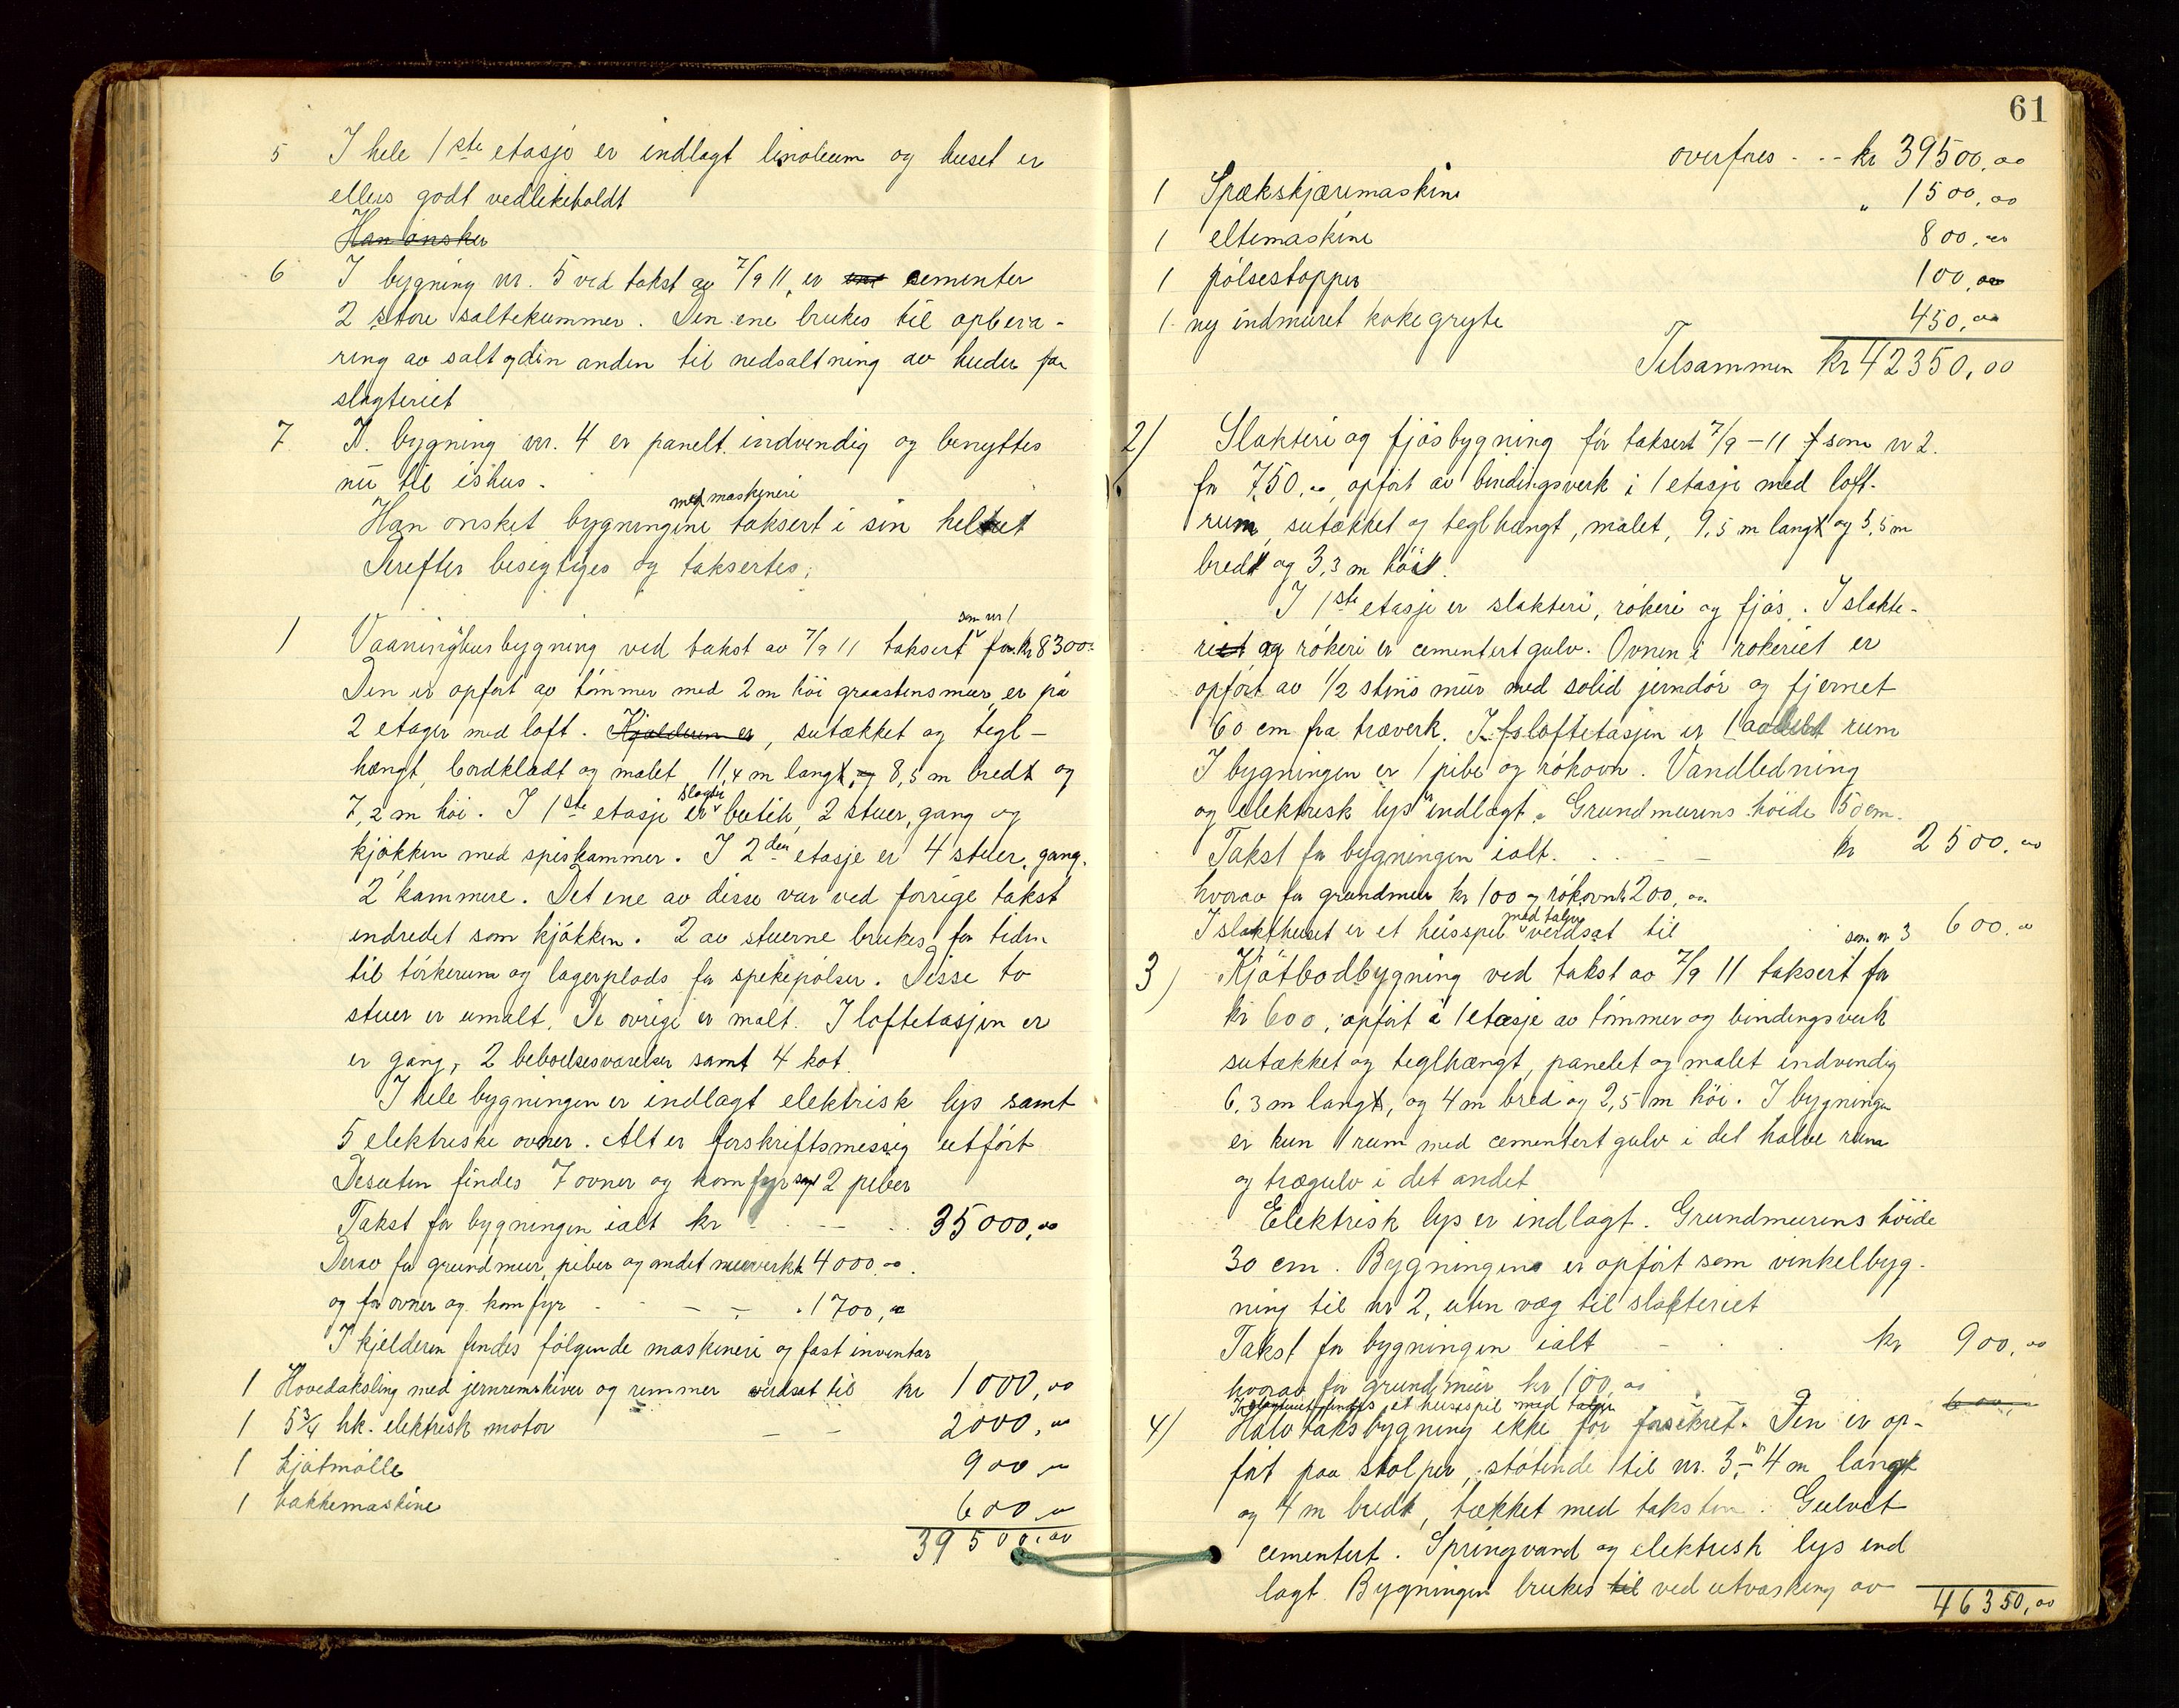 5 I hele 1ste etasje er indlagt linoleum og huset er
ellers godt vedlikeholdt
Han ønsker
6 I bygning nr. 5 ved takst av 7/9 11, er cementer
2 store saltekummer. Den ene brukes til opbeva-
ring av salt og den anden til nedsaltning av huder fra
slagteriet
7 I. bygning nr. 4 er panelt indvendig og benyttes
nu til ishus.
med maskineri
Han ønsket bygningene taksert i sin helhet
Derefter besigtiges og taksertes;
som nr 1
1 Vaaningshusbygning ved takst av 7/9 11 taksert for kr 8300.-
Den er opført av tømmer med 2 m høi graastensmur, er på
2 etager med loft. Kjælderen er, sutækket og tegl-
hængt, bordklædt og malet, 11,4 m langt, og 8,5 m bredt og
slagter
7,2 m høi. I 1ste etasje er butik, 2 stuer, gang og
kjøkken med spiskammer. I 2den etasje er 4 stuer, gang,
2 kammere. Det ene av disse var ved forrige takst
indredet som kjøkken. 2 av stuerne brukes for tiden
til tørkerum og lagerplads for spekepølser. Disse to
stuer er umalt. De øvrige er malt. I loftetasjen er
er gang, 2 beboelsesværelser samt 4 kot.
I hele bygningen er indlagt elektrisk lys samt
5 elektriske ovner. Alt er forskriftsmessig utført
Desuten findes 7 ovner og komfyr samt 2 piber
Takst for bygningen ialt kr - - - 35000,00
Derav for grundmur, piber og andet murverk kr 4000.00.
og for ovner og komfyr - - - - . 1700,00
I kjelderen findes følgende maskineri og fast inventar
1 Hovedaksling med jernremskiver og remmer verdsat til kr 1000,00
1 5 3/4 hk. elektrisk motor - - 2000,00
1 kjøtmølle 900,00
1 hakkemaskine 600,00
39500,00
61
overføres - - - kr 39500,00
1 Spækskjæremaskine " 1500,00
1 eltemaskine 800,00
1 pølsestopper 100,00
1 ny indmuret kokegryte 450,00
Tilsammen kr 42350,00
2) Slakteri og fjøsbygning før taksert 7/9-11 som nr 2.
for 750.00, opført av bindingsverk i 1 etasje med loft-
rum, sutækket og teglhængt, malet, 9,5 m langt og 5,5 m
bredt og 3,3 m høit.
I 1ste etasje er slakteri, røkeri og fjøs. I slakte-
riet og røkeri er cementert gulv. Ovnen i røkeriet er
opført av 1/2 stens mur med solid jerndør og fjernet
60 cm fra træverk. I loftetasjen er 1 avdelt rum
I bygningen er 1 pibe og røkovn. Vandledning
og elektrisk lys er indlagt. Grundmurens høide 50 cm.
Takst for bygningen ialt. . . - - kr 2500.00
hvorav for grundmur kr 100 og røkovn kr 200,00.
med taljer
I slakthuset er et heisspil verdsat til 600.00
som nr 3
3) Kjøtbodbygning ved takst av 7/9 11 taksert for
kr 600, opført i 1 etasje av tømmer og bindingsverk
sutækket og teglhængt, panelet og malet indvendig
6,3 m langt, og 4 m bred og 2,5 m høi. I bygningen
er kun 1 rum med cementert gulv i det halve rum
og trægulv i det andet
Elektrisk lys er indlagt. Grundmurens høide
30 cm. Bygningen er opført som vinkelbyg-
ning til nr 2, uten væg til slakteriet
Takst for bygningen ialt - . . kr 900,00
hvorav for grundmur kr 100,00
I slagteriet findes et heisespil med taljer 600,-
4) Halvtaksbygning ikke før forsikret. Den er op-
ført paa stolper, støtende til nr. 3, 4 m langt
og 4 m bredt, tækket med taksten. Gulvet
cementert. Springvand og elektrisk lys ind
lagt. Bygningen brukes til ved utvasking av
46350,00